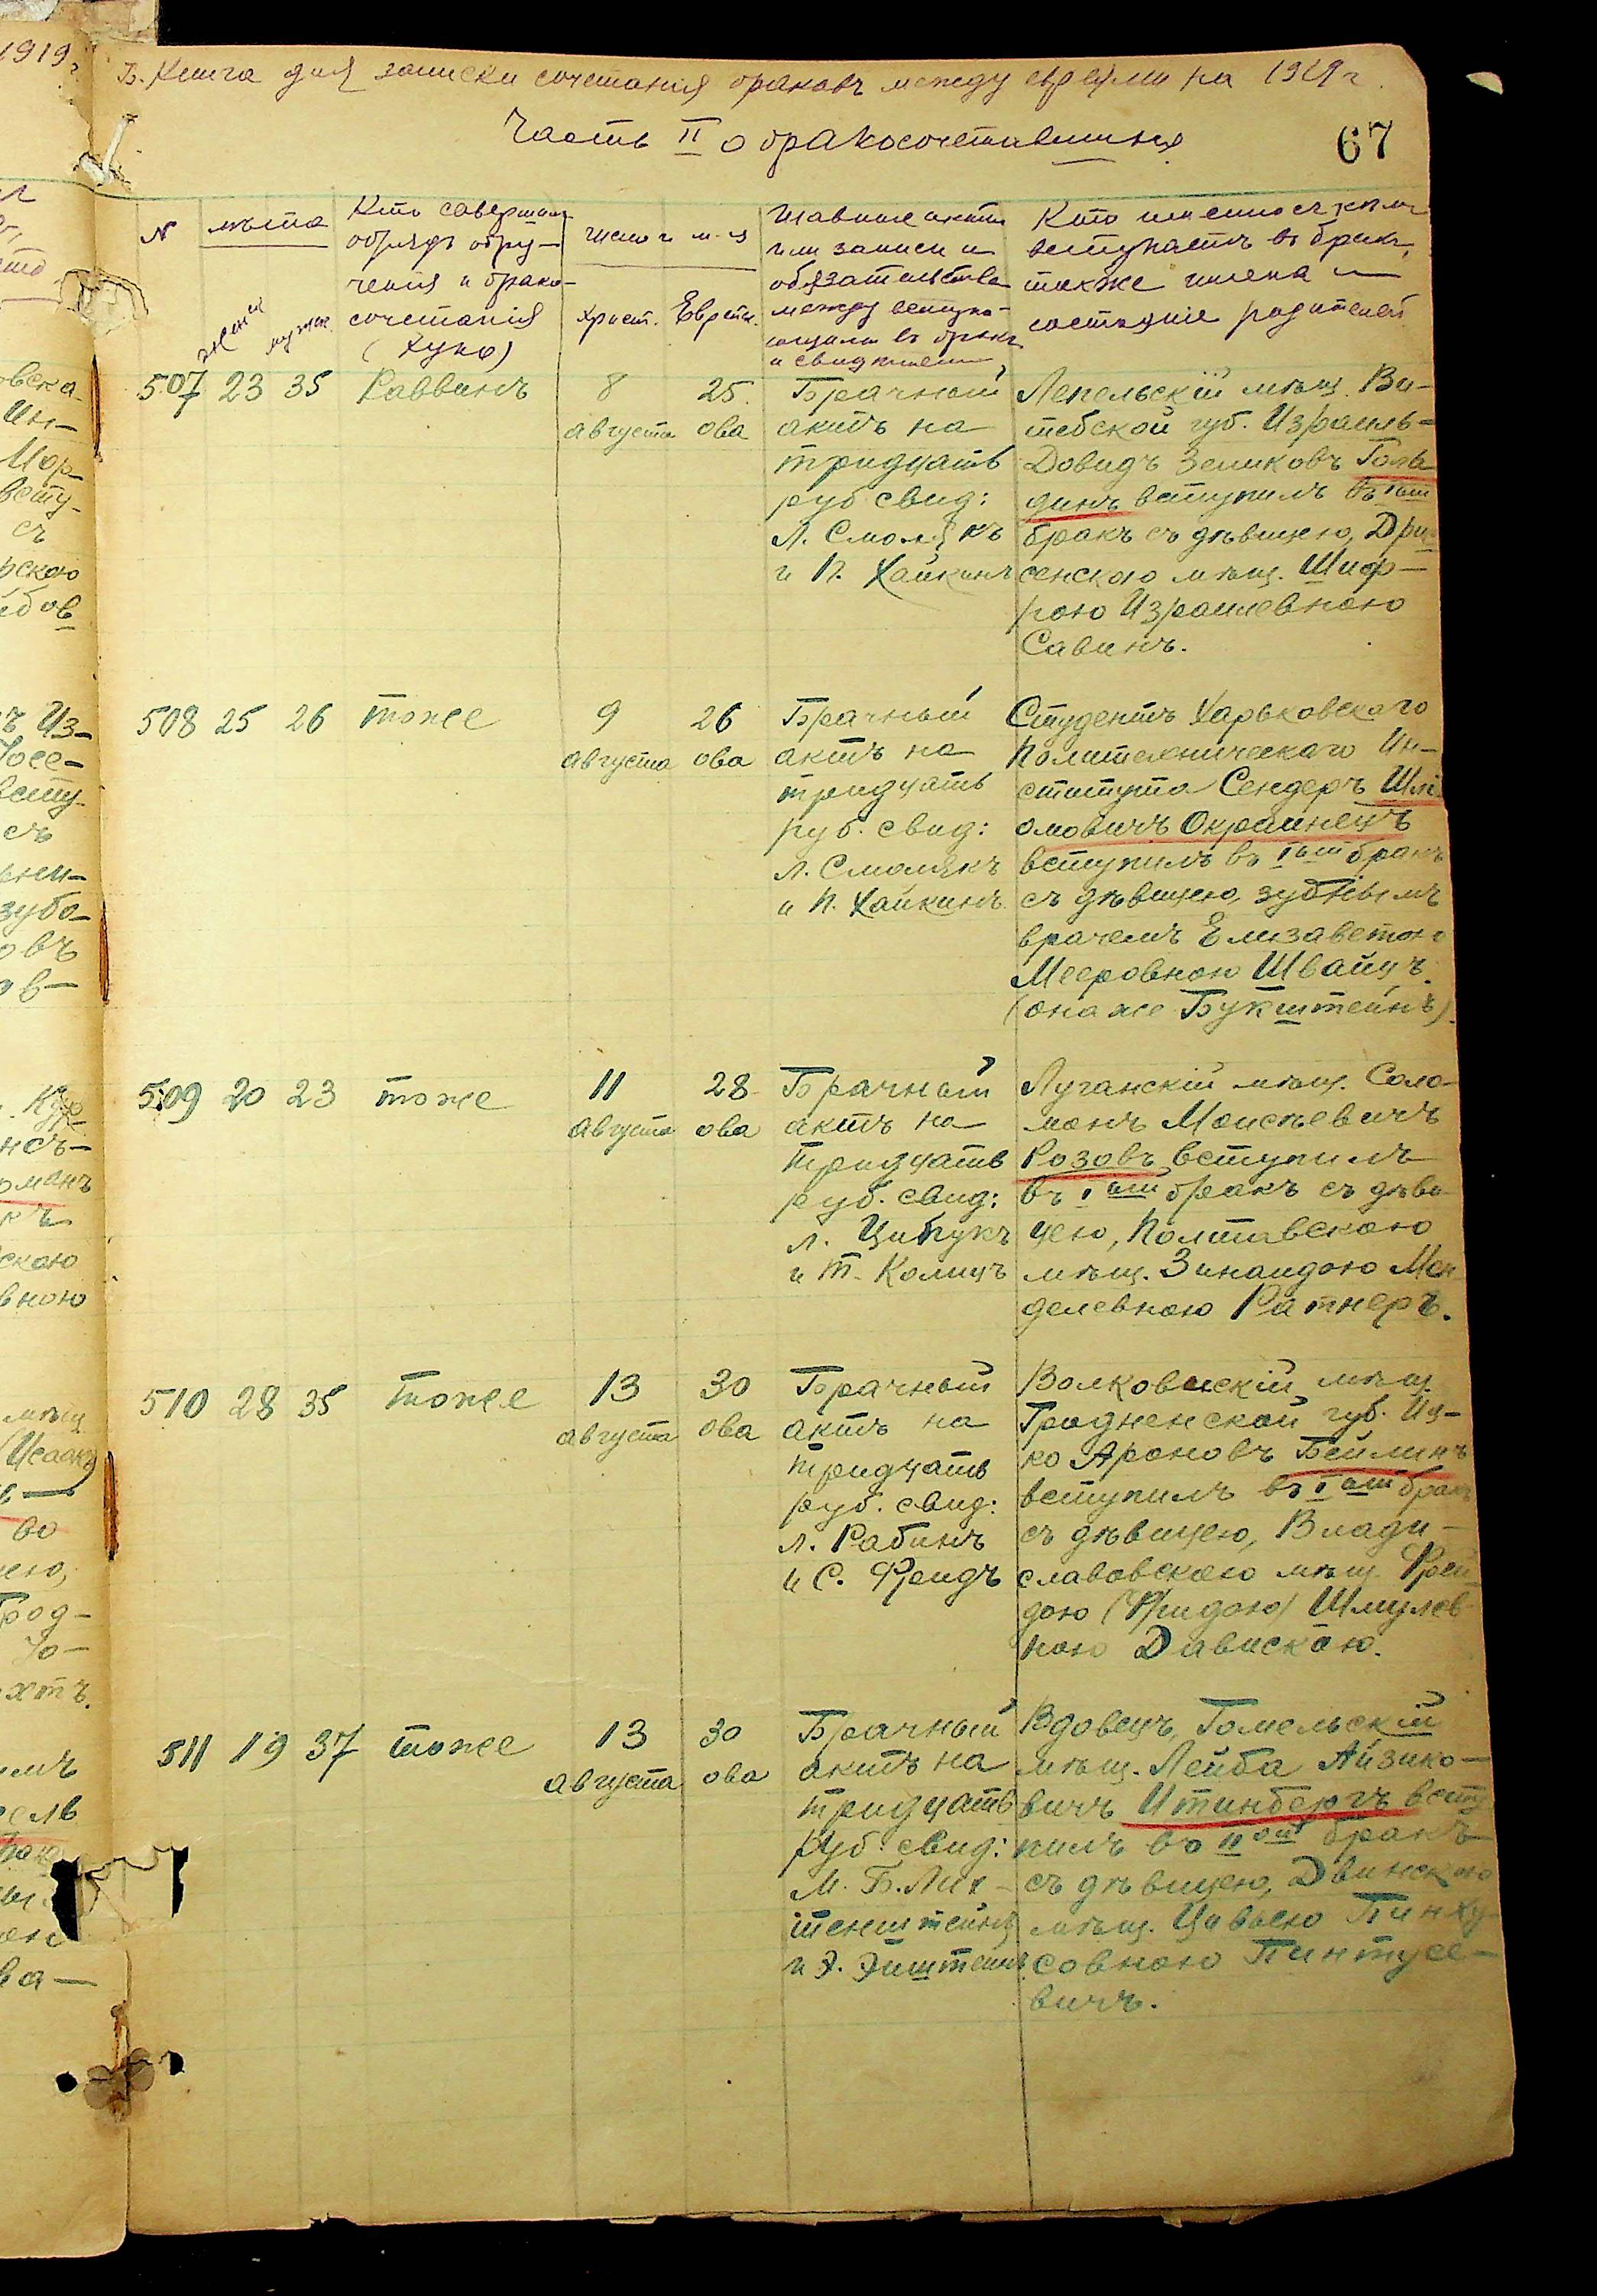 1919 г.
Б. Книга для записки сочетанія браковъ между евреями на 1919 г.
Часть II о бракосочетавшихся
67
N
лѣта
жены
мужа
Кто совершал
обрядъ обру-
ченія и брако-
сочетанія
(Хупо)
число и м-ц
Христ. Еврейс.
Главные акты
или записи и
обязательства
между вступа-
ющими въ бракъ
и свидѣтели
Кто именно съ кѣмъ
вступаетъ въ бракъ,
также имена и
состояніе родителей
507 23 35 Раввинъ
8 августа
25 ова
Брачный
актъ на
тридцать
руб свид:
Л. Смолякъ
и П. Хайкинъ
Лепельскій мѣщ. Ви-
тебской губ. Израиль-
Довидъ Зеликовъ Голь-
динъ вступилъ въ Iый
бракъ съ дѣвицею, Дри-
сенскою мѣщ. Шиф-
рою Израилевною
Савинъ.
508 25 26 тоже
9 августа
26 ова
Брачный
актъ на
тридцать
руб. свид:
Л. Смолякъ
и П. Хайкинъ
Студентъ Харьковскаго
Политехническаго Ин-
ститута Сендеръ Шлi-
омовичъ Окраинецъ
вступилъ въ Iый бракъ
съ дѣвицею, зубнымъ
врачемъ Елизаветою
Мееровною Швайцъ.
(она же Букштейнъ).
509 20 23 тоже
11 августа
28 ова
Брачный
актъ на
тридцать
руб. свид:
Л. Цыпукъ
и Т. Колицъ
Луганскій мѣщ. Соло-
монъ Моисѣевичъ
Розовъ вступилъ
въ Iый бракъ съ дѣви-
цею, Полтавскою
мѣщ. Зинаидою Мен-
делевною Ратнеръ.
510 28 35 тоже
13 августа
30 ова
Брачный
актъ на
тридцать
руб. свид:
Л. Рабинъ
и С. Фреидъ
Волковискій мѣщ.
Гродненской губ. Иц-
ко Ароновъ Бейлинъ
вступилъ въ Iый бракъ
съ дѣвицею, Влади-
славовскою мѣщ. Фрей-
дою (Фридою) Шмулев-
ною Давискою.
511 19 37 тоже
13 августа
30 ова
Брачный
актъ на
тридцать
руб. свид:
М. Б. Лих-
тенштейнъ
и Э. Эпштейнъ
Вдовецъ, Гомельскій
мѣщ. Лейба Айзико-
вичъ Итинбергъ всту-
пилъ во IIой бракъ
съ дѣвицею, Двинскою
мѣщ. Цивьею Пинху-
совною Пинтусе-
вичъ.